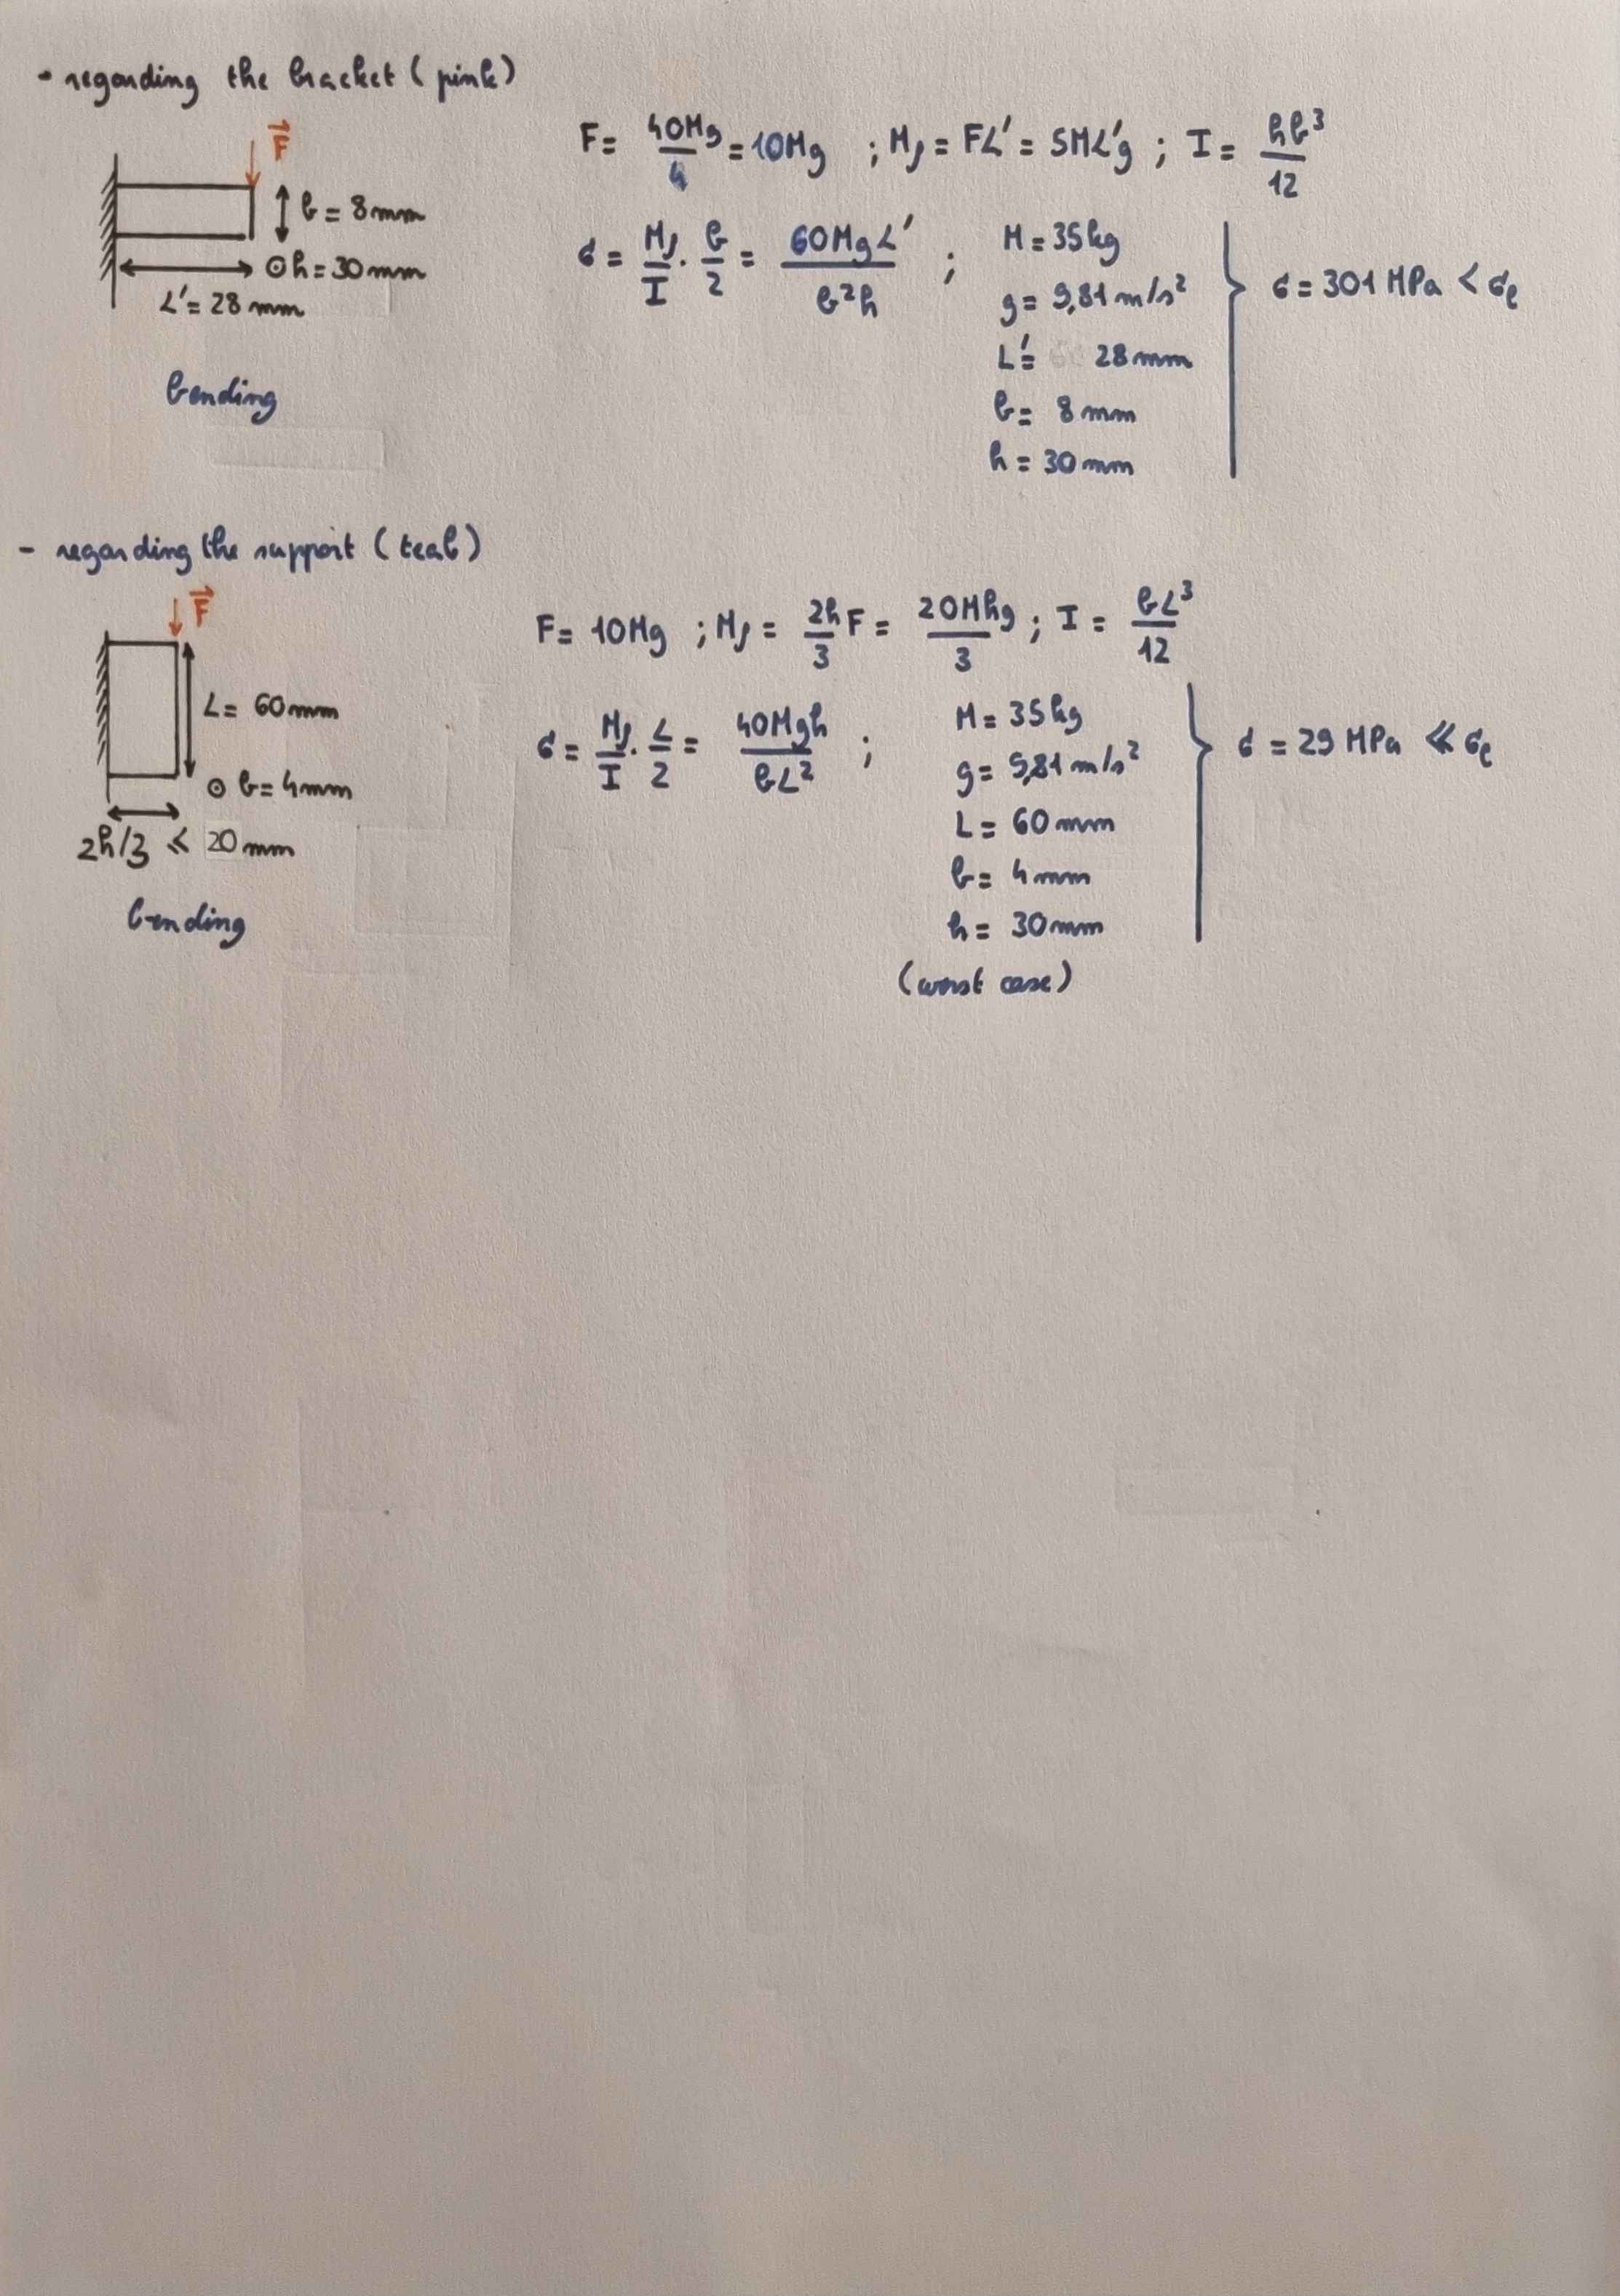 - regarding the bracket (pink)
F→
b = 8mm
⊙ h = 30mm
L' = 28 mm
bending
F = 40Mg/4 = 10Mg ; Mf = FL' = 5ML'g ; I = hb³/12
σ = Mf/I · b/2 = 60MgL'/b²h ;
M = 35kg
g = 9,81 m/s²
L' = 28mm
b = 8mm
h = 30mm
σ = 301 MPa < σe
- regarding the support (teal)
F→
L = 60mm
⊙ b = 4mm
2h/3 ≤ 20mm
bending
F = 10Mg ; Mf = 2h/3 F = 20Mhg/3 ; I = bL³/12
σ = Mf/I · L/2 = 40Mgh/bL² ;
M = 35kg
g = 9,81 m/s²
L = 60mm
b = 4mm
h = 30mm
(worst case)
σ = 29 MPa ≪ σe